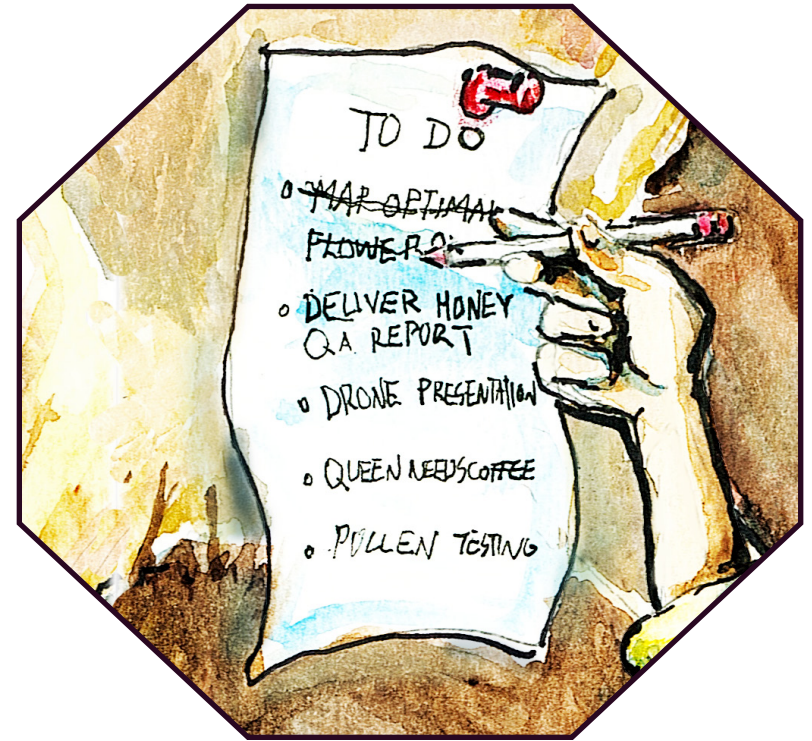 TO DO
MAP OPTIMAL
FLOWER
DELIVER HONEY
QA REPORT
DRONE PRESENTATION
QUEEN NEEDS COFFEE
POLLEN TESTING